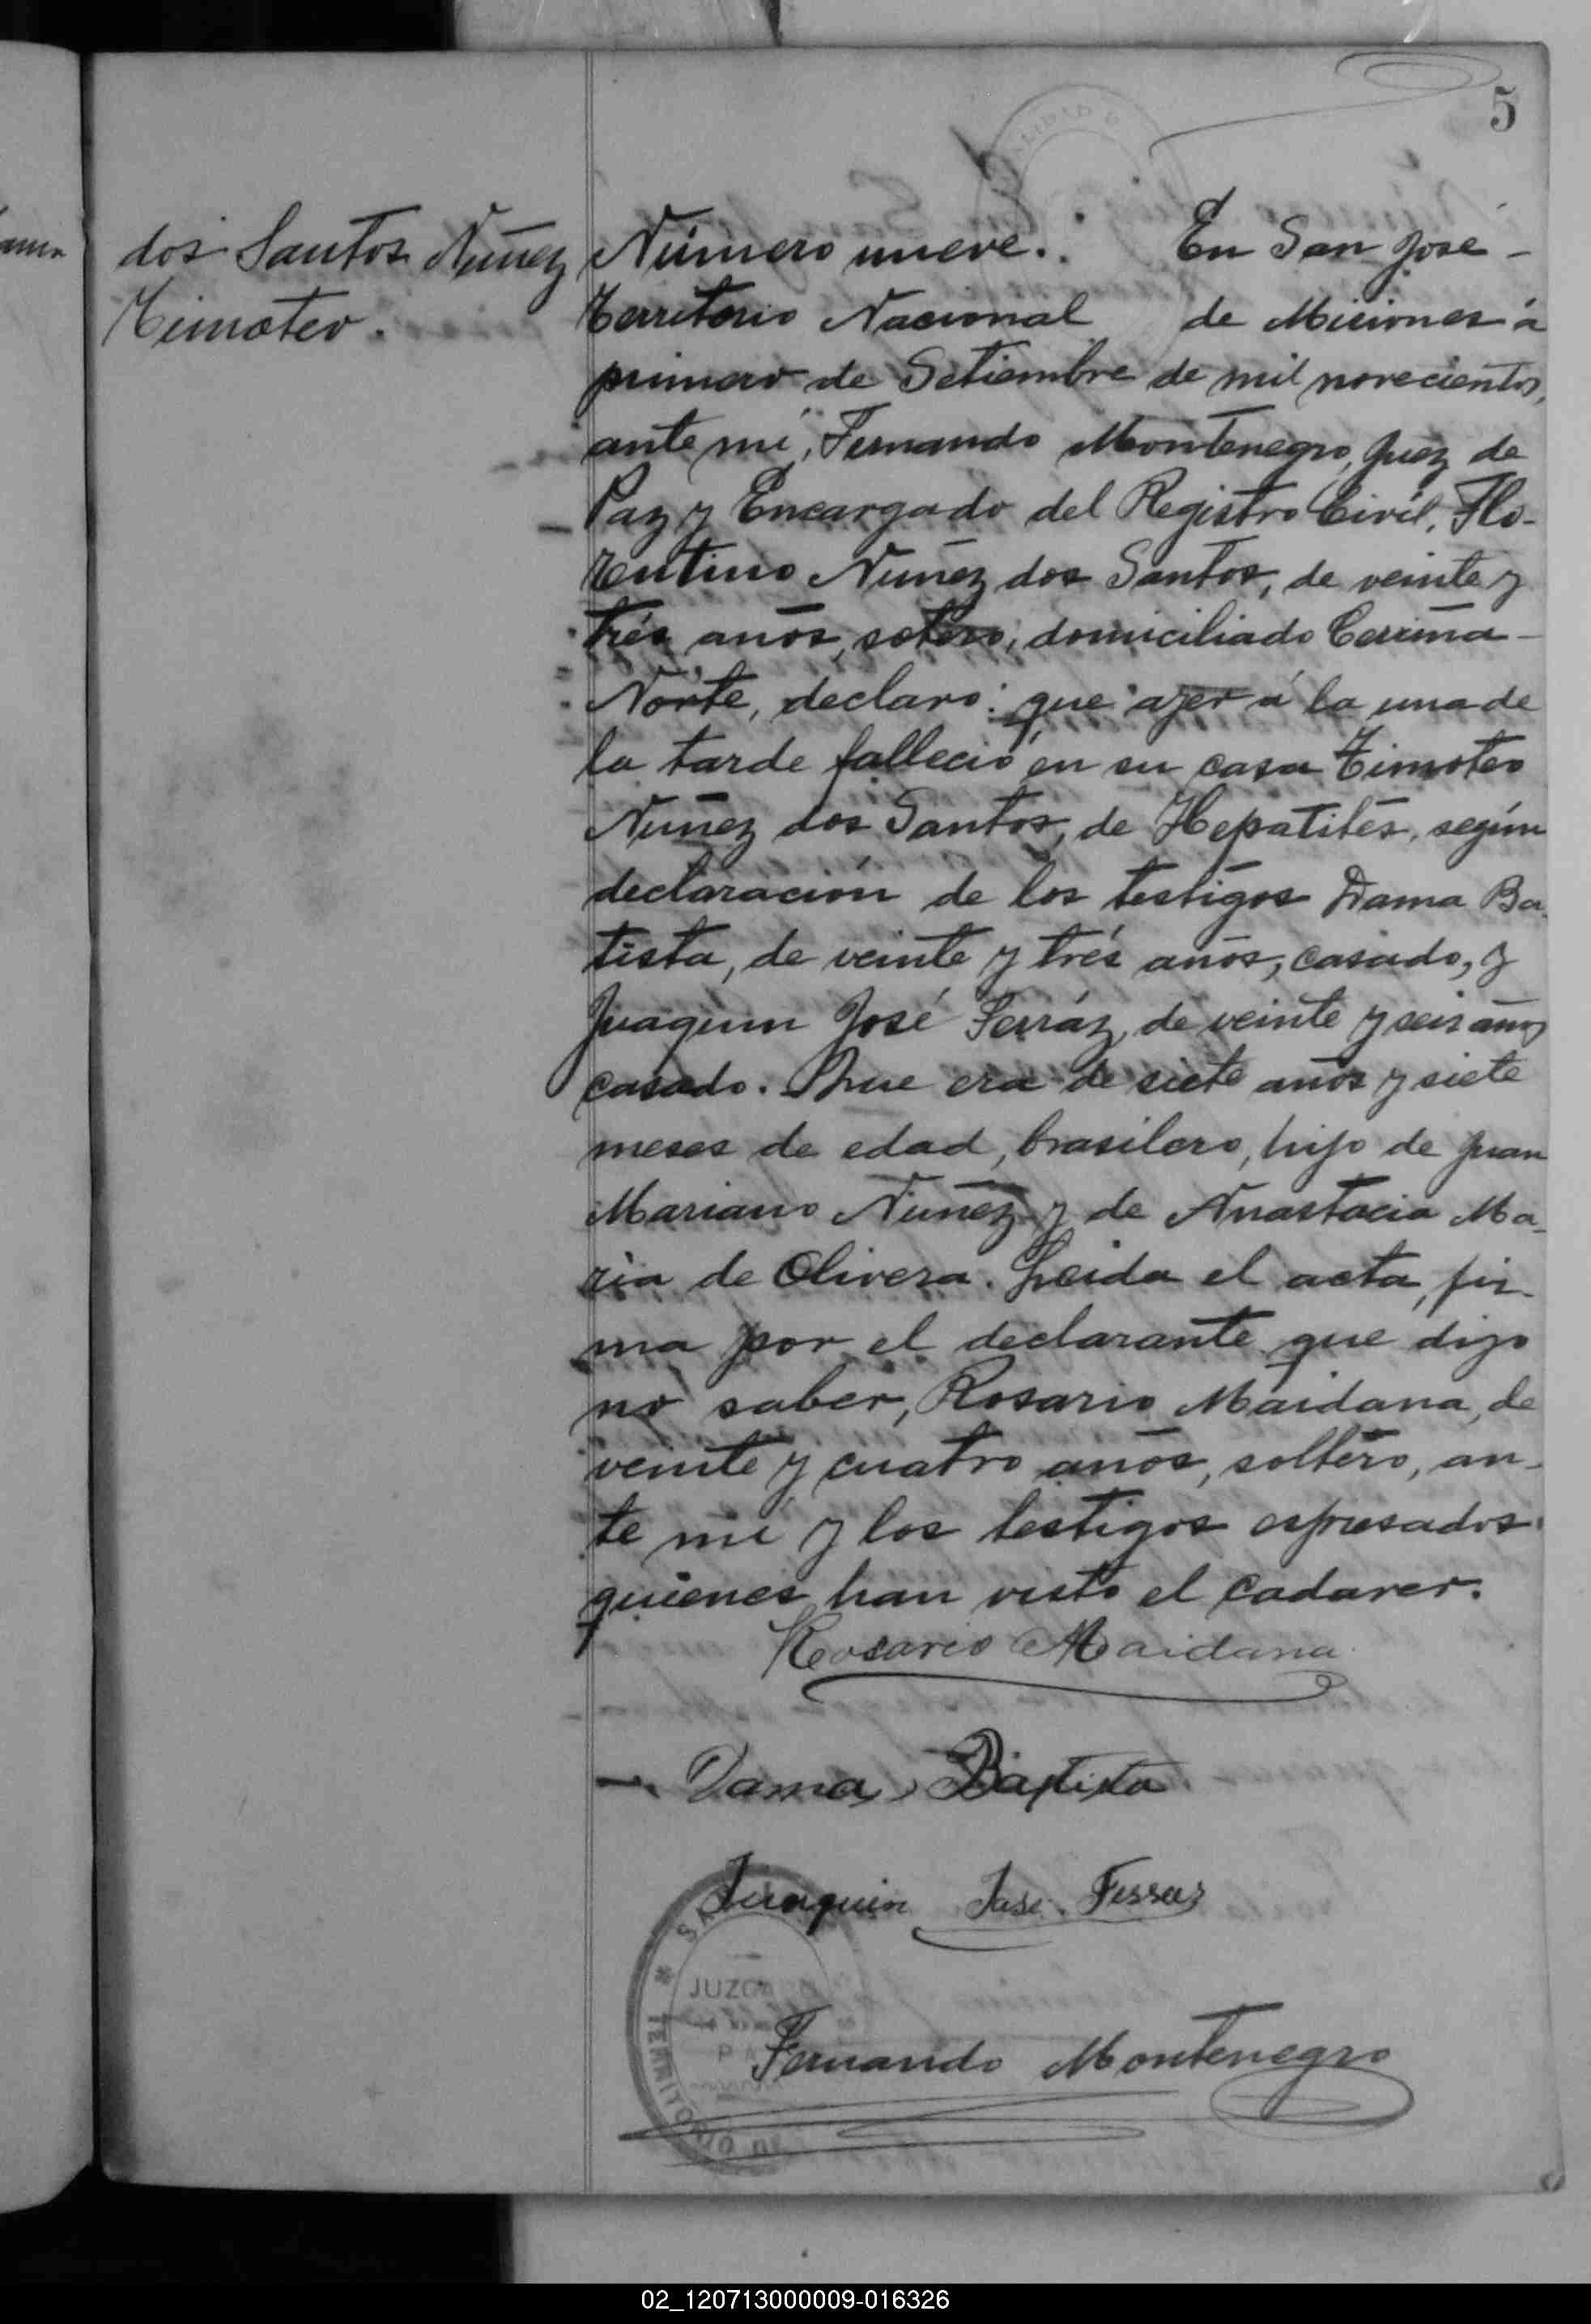 5
dos Santos Nuñez
Timoteo.
Número nueve.. En San José -
Territorio Nacional de Misiones á
primero de Setiembre de mil novecientos,
ante mí, Fernando Montenegro, Juez de
Paz y Encargado del Registro Civil, Flo-
rentino Nuñez dos Santos, de veinte y
trés años, soltero, domiciliado
Norte, declaró: que ayer á la una de
la tarde falleció en su casa Timoteo
Nuñez dos Santos, de Hepatites, según
declaración de los testigos Dama Ba-
tista, de veinte y trés años, casado, y
Juaquin José Ferráz, de veinte y seis años
casado. Que era de siete años y siete
meses de edad, brasilero, hijo de Juan
Mariano Nuñez y de Anastacia Ma-
ria de Olivera. Leida el acta, fir-
ma por el declarante que dijo
no saber, Rosario Maidana, de
veinte y cuatro años, soltero, an-
te mi y los testigos espresados
quienes han visto el cadaver.
Rosario Maidana
Dama Baptista
Juaquin José Ferraz
JUZG
TERRITORIO DE
Fernando Montenegro
02_120713000009-016326